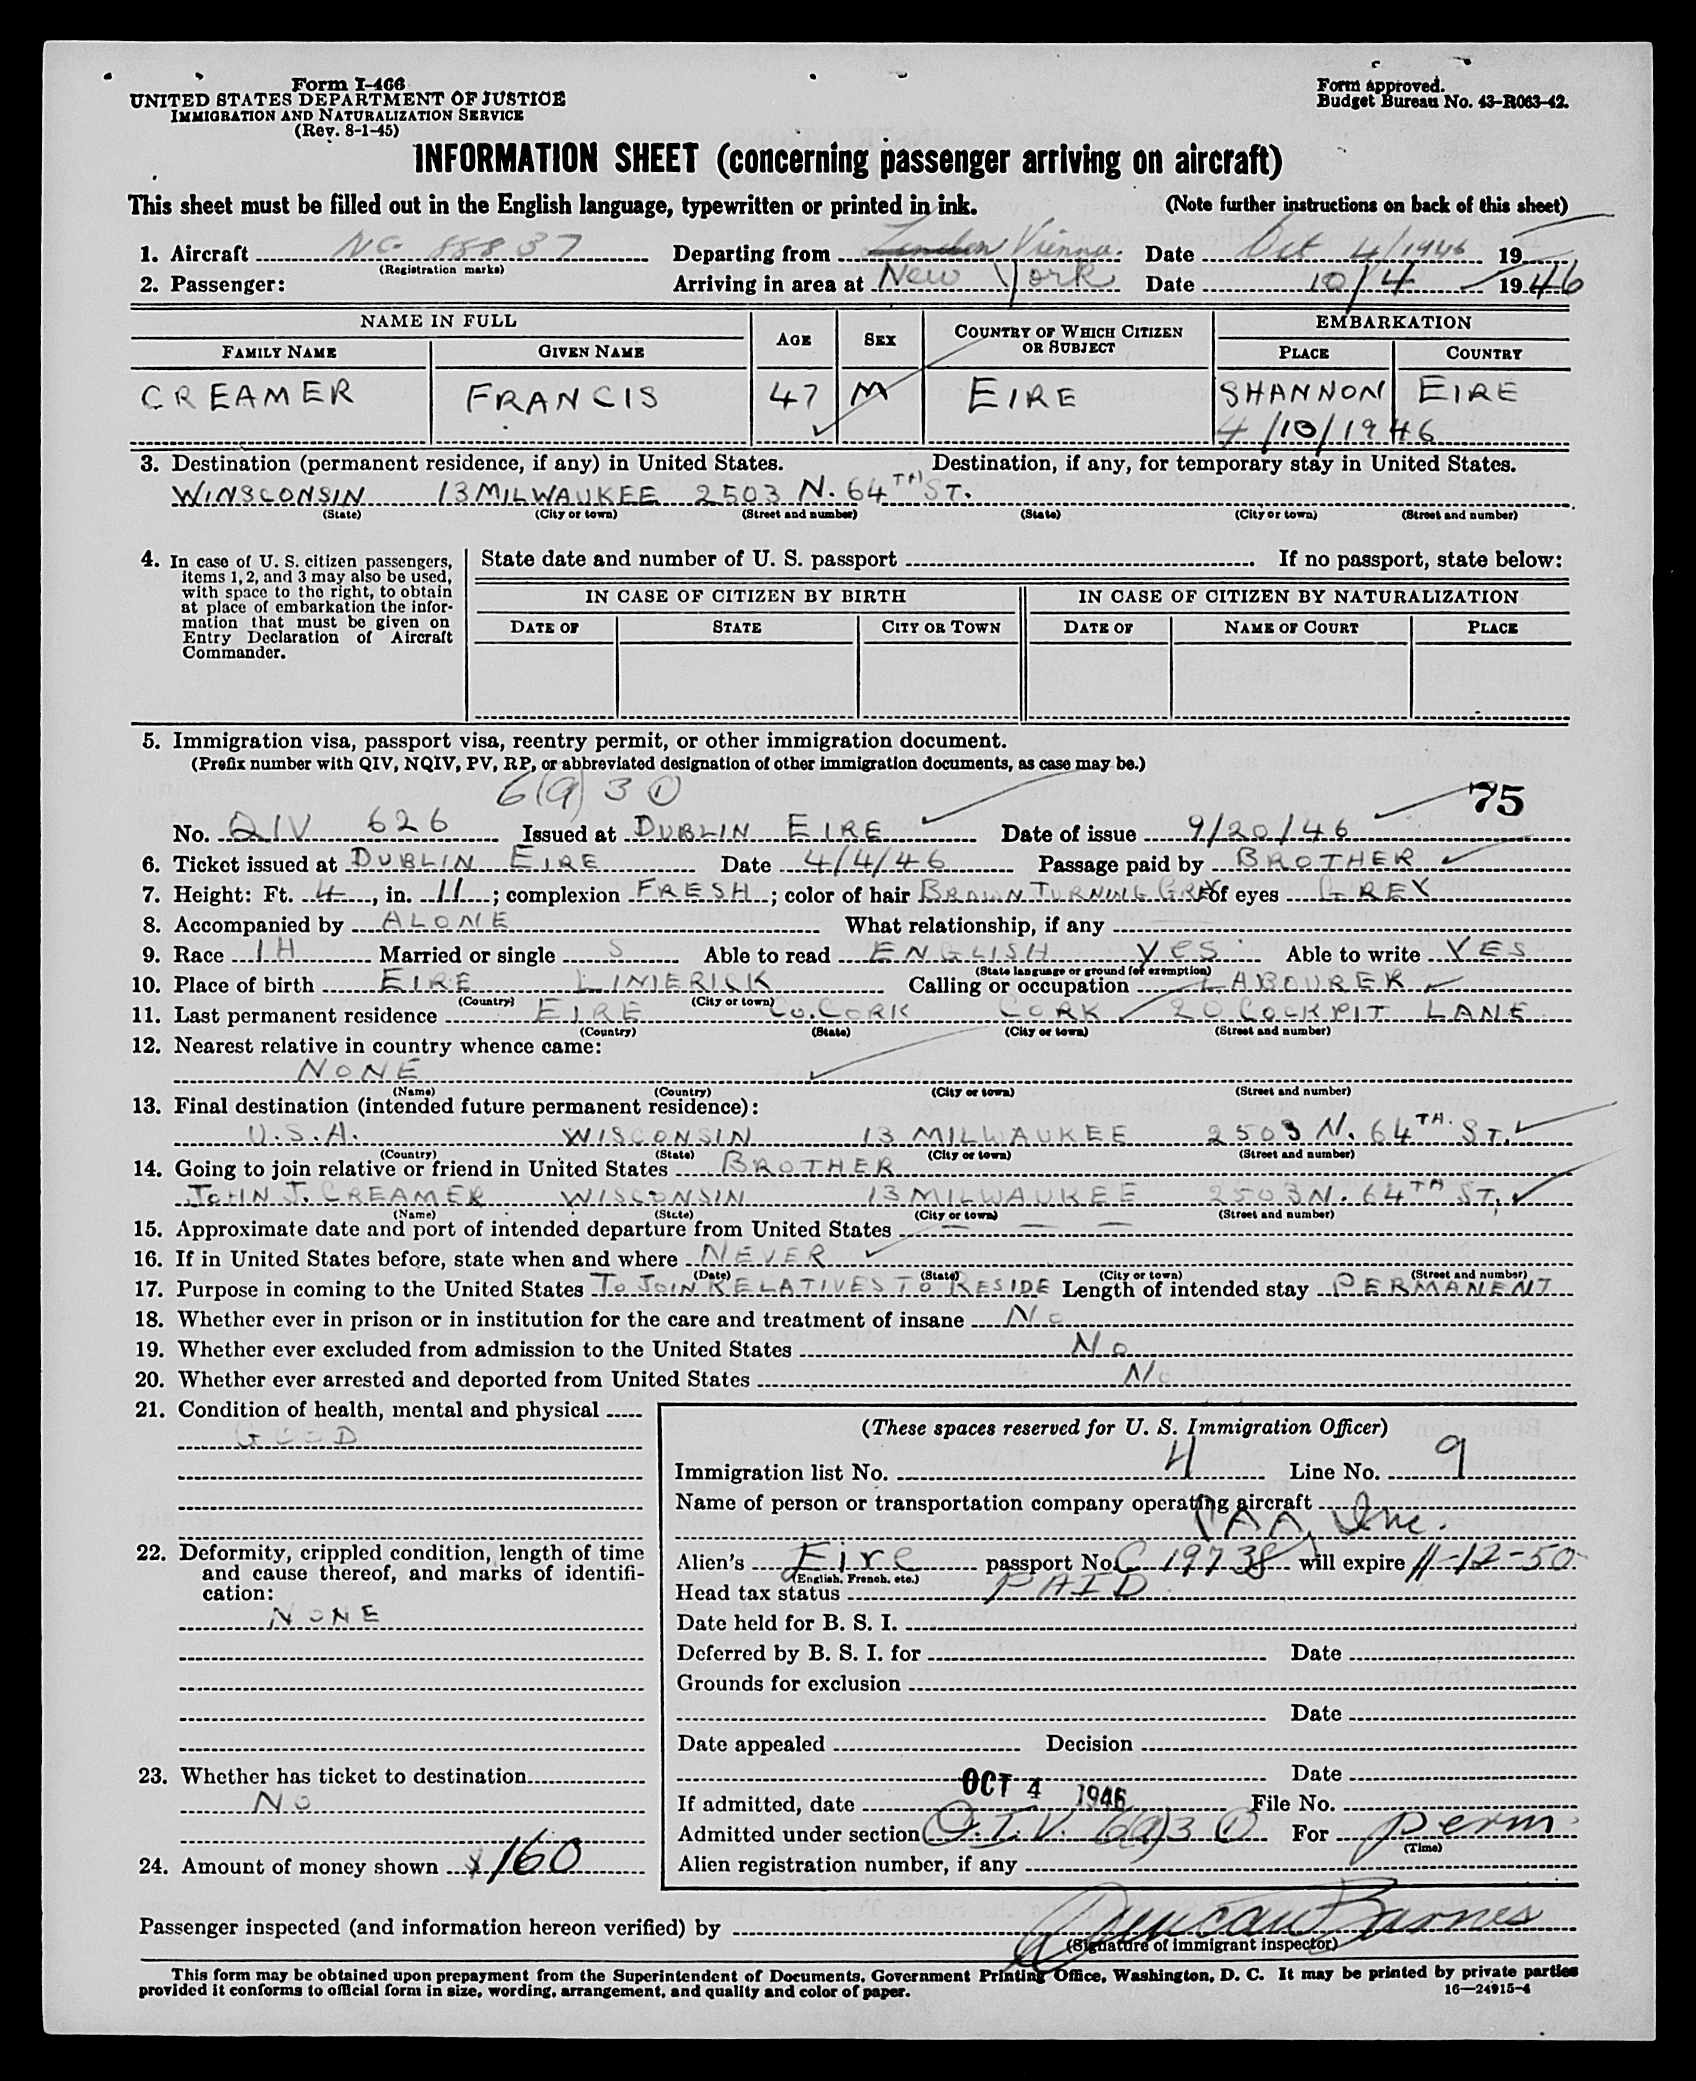 Form I-466
UNITED STATES DEPARTMENT OF JUSTICE
IMMIGRATION AND NATURALIZATION SERVICE
(Rev. 8-1-45)
Form approved.
Budget Bureau No. 43-R063-42.
INFORMATION SHEET (concerning passenger arriving on aircraft)
This sheet must be filled out in the English language, typewritten or printed in ink. (Note further instructions on back of this sheet)
1. Aircraft NC 88837 Departing from London Vienna. Date Oct 4/1946 19
(Registration marks)
2. Passenger: Arriving in area at New York Date 10/4 1946
NAME IN FULL AGE SEX COUNTRY OF WHICH CITIZEN OR SUBJECT EMBARKATION
FAMILY NAME GIVEN NAME PLACE COUNTRY
CREAMER FRANCIS 47 M EIRE SHANNON EIRE
4/10/1946
3. Destination (permanent residence, if any) in United States. Destination, if any, for temporary stay in United States.
WINSCONSIN 13 MILWAUKEE 2503 N. 64TH ST.
(State) (City or town) (Street and number) (State) (City or town) (Street and number)
4. In case of U. S. citizen passengers, items 1, 2, and 3 may also be used, with space to the right, to obtain at place of embarkation the information that must be given on Entry Declaration of Aircraft Commander.
State date and number of U. S. passport If no passport, state below:
IN CASE OF CITIZEN BY BIRTH IN CASE OF CITIZEN BY NATURALIZATION
DATE OF STATE CITY OR TOWN DATE OF NAME OF COURT PLACE
5. Immigration visa, passport visa, reentry permit, or other immigration document.
(Prefix number with QIV, NQIV, PV, RP, or abbreviated designation of other immigration documents, as case may be.)
6(a)3 ① 75
No. QIV 626 Issued at DUBLIN EIRE Date of issue 9/20/46
6. Ticket issued at DUBLIN EIRE Date 4/4/46 Passage paid by BROTHER
7. Height: Ft. 4, in. 11; complexion FRESH; color of hair BROWN TURNING GREY of eyes GREY
8. Accompanied by ALONE What relationship, if any
9. Race IH Married or single S Able to read ENGLISH YES Able to write YES
(State language or ground for exemption)
10. Place of birth EIRE LIMERICK Calling or occupation LABOURER
(Country) (City or town)
11. Last permanent residence EIRE CO. CORK CORK 20 COCKPIT LANE
(Country) (State) (City or town) (Street and number)
12. Nearest relative in country whence came:
NONE
(Name) (Country) (City or town) (Street and number)
13. Final destination (intended future permanent residence):
U.S.A. WISCONSIN 13 MILWAUKEE 2503 N. 64TH. ST.
(Country) (State) (City or town) (Street and number)
14. Going to join relative or friend in United States BROTHER
JOHN J. CREAMER WISCONSIN 13 MILWAUKEE 2503 N. 64TH ST.
(Name) (State) (City or town) (Street and number)
15. Approximate date and port of intended departure from United States — — —
16. If in United States before, state when and where NEVER
(Date) (State) (City or town) (Street and number)
17. Purpose in coming to the United States TO JOIN RELATIVES TO RESIDE Length of intended stay PERMANENT
18. Whether ever in prison or in institution for the care and treatment of insane No
19. Whether ever excluded from admission to the United States No
20. Whether ever arrested and deported from United States No
21. Condition of health, mental and physical
GOOD
22. Deformity, crippled condition, length of time and cause thereof, and marks of identification:
NONE
23. Whether has ticket to destination
NO
24. Amount of money shown $160
(These spaces reserved for U. S. Immigration Officer)
Immigration list No. 4 Line No. 9
Name of person or transportation company operating aircraft
PAA, Inc.
Alien's Eire passport No. C 19738 will expire 11-12-50
(English, French, etc.)
Head tax status PAID
Date held for B. S. I.
Deferred by B. S. I. for Date
Grounds for exclusion
Date
Date appealed Decision
Date
If admitted, date OCT 4 1946 File No.
Admitted under section Q.I.V. 6(a)3 ① For perm
(Time)
Alien registration number, if any
Passenger inspected (and information hereon verified) by Duncan Barnes
(Signature of immigrant inspector)
This form may be obtained upon prepayment from the Superintendent of Documents, Government Printing Office, Washington, D. C. It may be printed by private parties
provided it conforms to official form in size, wording, arrangement, and quality and color of paper. 16—24915-4